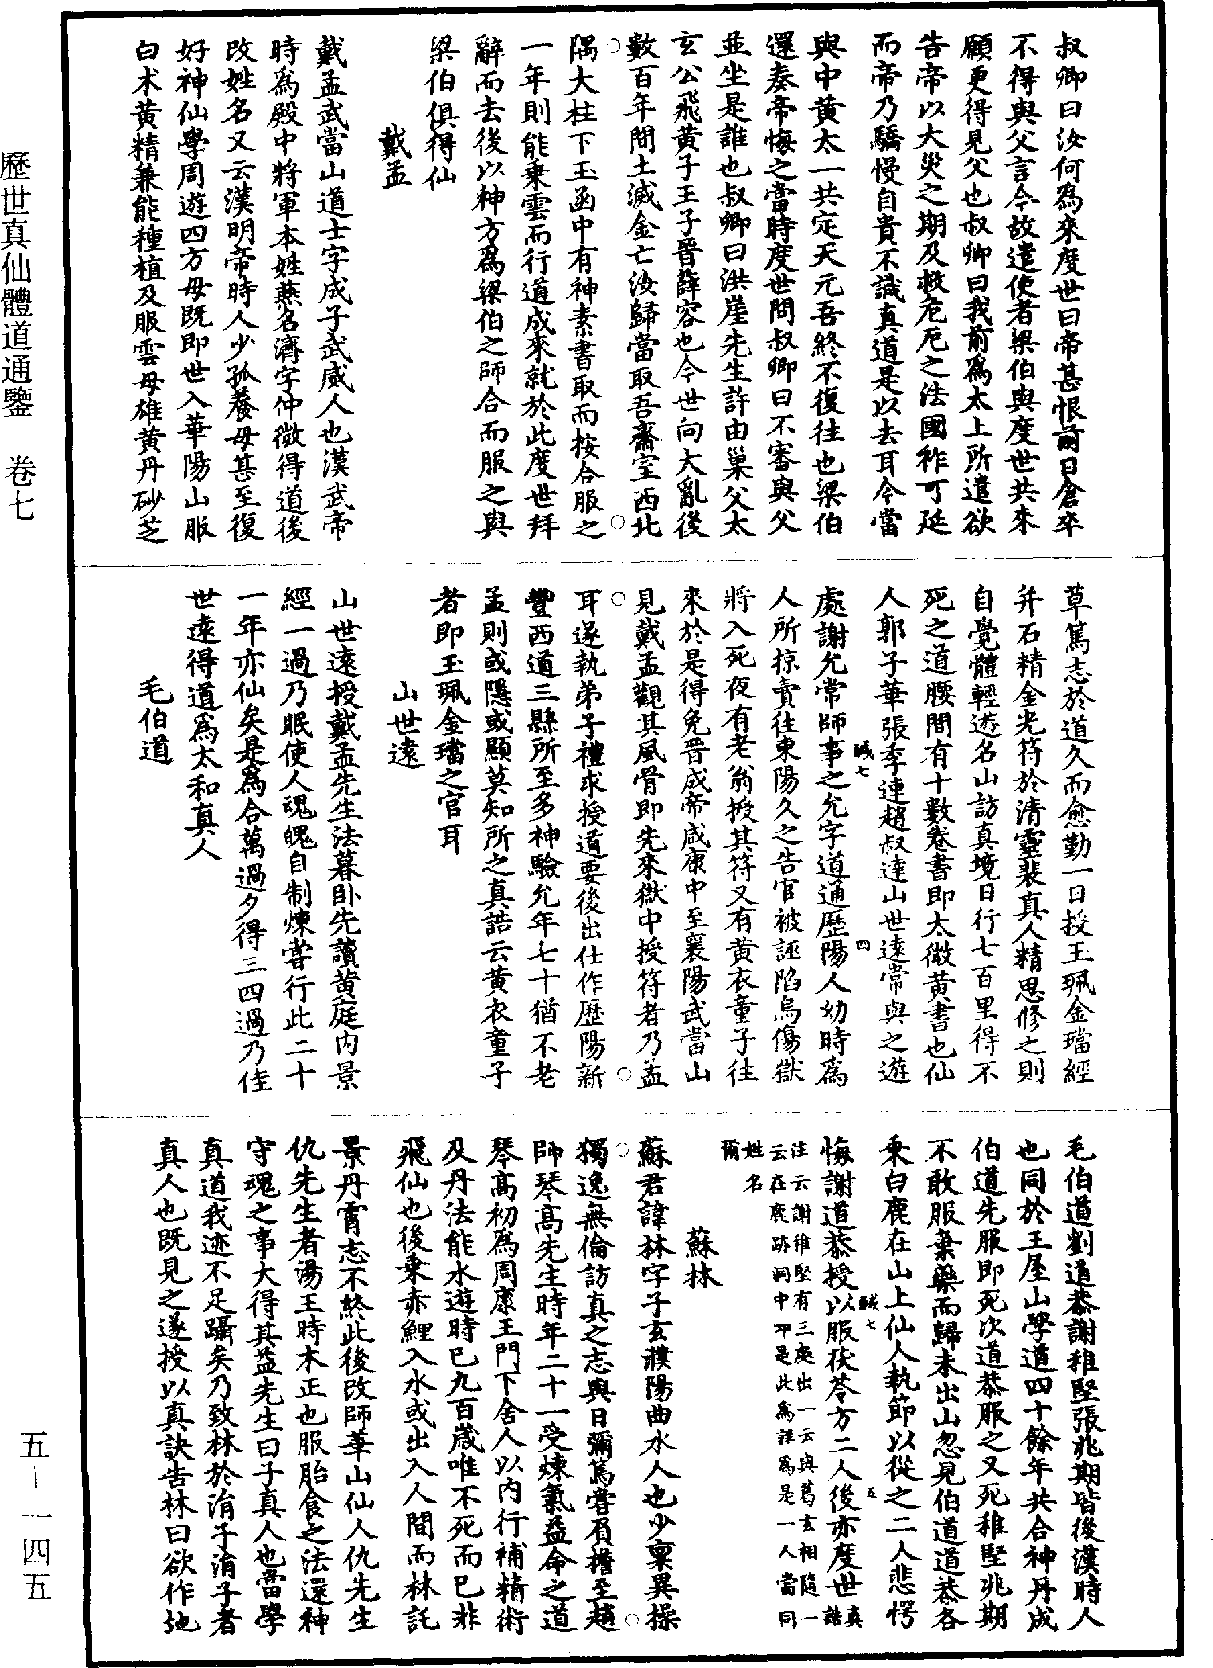 歷世真仙體道通鑒　卷七
五—一四五
叔卿曰汝何為來度世曰帝甚恨前日倉卒
不得與父言今故遣使者梁伯與度世共來
願更得見父也叔卿曰我前為太上所遣欲
告帝以大災之期及救危厄之法國祚可延
而帝乃驕慢自貴不識真道是以去耳今當
與中黃太一共定天元吾終不復往也梁伯
還奏帝悔之當時度世問叔卿曰不審與父
並坐是誰也叔卿曰洪崖先生許由巢父太
玄公飛黃子王子晉薛容也今世向大亂後
數百年間土滅金亡汝歸當取吾齋室西北
隅大柱下玉函中有神素書取而按合服之
一年則能乘雲而行道成來就於此度世拜
辭而去後以神方為梁伯之師合而服之與
梁伯俱得仙
戴孟
戴孟武當山道士字成子武威人也漢武帝
時為殿中將軍本姓燕名濟字仲微得道後
改姓名又云漢明帝時人少孤養母甚至復
好神仙學周遊四方母既即世入華陽山服
白朮黃精兼能種植及服雲母雄黃丹砂芝
草篤志於道久而愈勤一日授玉珮金璫經
并石精金光符於清靈裴真人精思修之則
自覺體輕遊名山訪真境日行七百里得不
死之道腰間有十數卷書即太微黃書也仙
人郭子華張季連趙叔達山世遠常與之遊
處謝允常師事之允字道通歷陽人幼時為
人所掠賣往東陽久之告官被誣陷烏傷獄
將入死夜有老翁授其符又有黃衣童子往
來於是得免晉成帝咸康中至襄陽武當山
見戴孟觀其風骨即先來獄中授符者乃孟
耳遂執弟子禮求授道要後出仕作歷陽新
豐西道三縣所至多神驗允年七十猶不老
孟則或隱或顯莫知所之真誥云黃衣童子
者即玉珮金璫之官耳
山世遠
山世遠授戴孟先生法暮臥先讀黃庭內景
經一過乃眠使人魂魄自制煉嘗行此二十
一年亦仙矣是為合萬過夕得三四過乃佳
世遠得道為太和真人
毛伯道
毛伯道劉道恭謝稚堅張兆期皆後漢時人
也同於王屋山學道四十餘年共合神丹成
伯道先服即死次道恭服之又死稚堅兆期
不敢服棄藥而歸未出山忽見伯道道恭各
乘白鹿在山上仙人執節以從之二人悲愕
悔謝道恭授以服茯苓方二人後亦度世真誥
注云謝稚堅有三處出一云與葛玄相隨一
云在鹿跡洞中即是此為誤為是一人當同
姓名
爾
蘇林
蘇君諱林字子玄濮陽曲水人也少稟異操
獨逸無倫訪真之志與日彌篤嘗負擔至趙
師琴高先生時年二十一受煉氣益命之道
琴高初為周康王門下舍人以內行補精術
及丹法能水遊時已九百歲唯不死而已非
飛仙也後乘赤鯉入水或出入人間而林託
景丹霄志不終此後改師華山仙人仇先生
仇先生者湯王時木正也服胎食之法還神
守魂之事大得其益先生曰子真人也當學
真道我迹不足躡矣乃致林於涓子涓子者
真人也既見之遂授以真訣告林曰欲作地